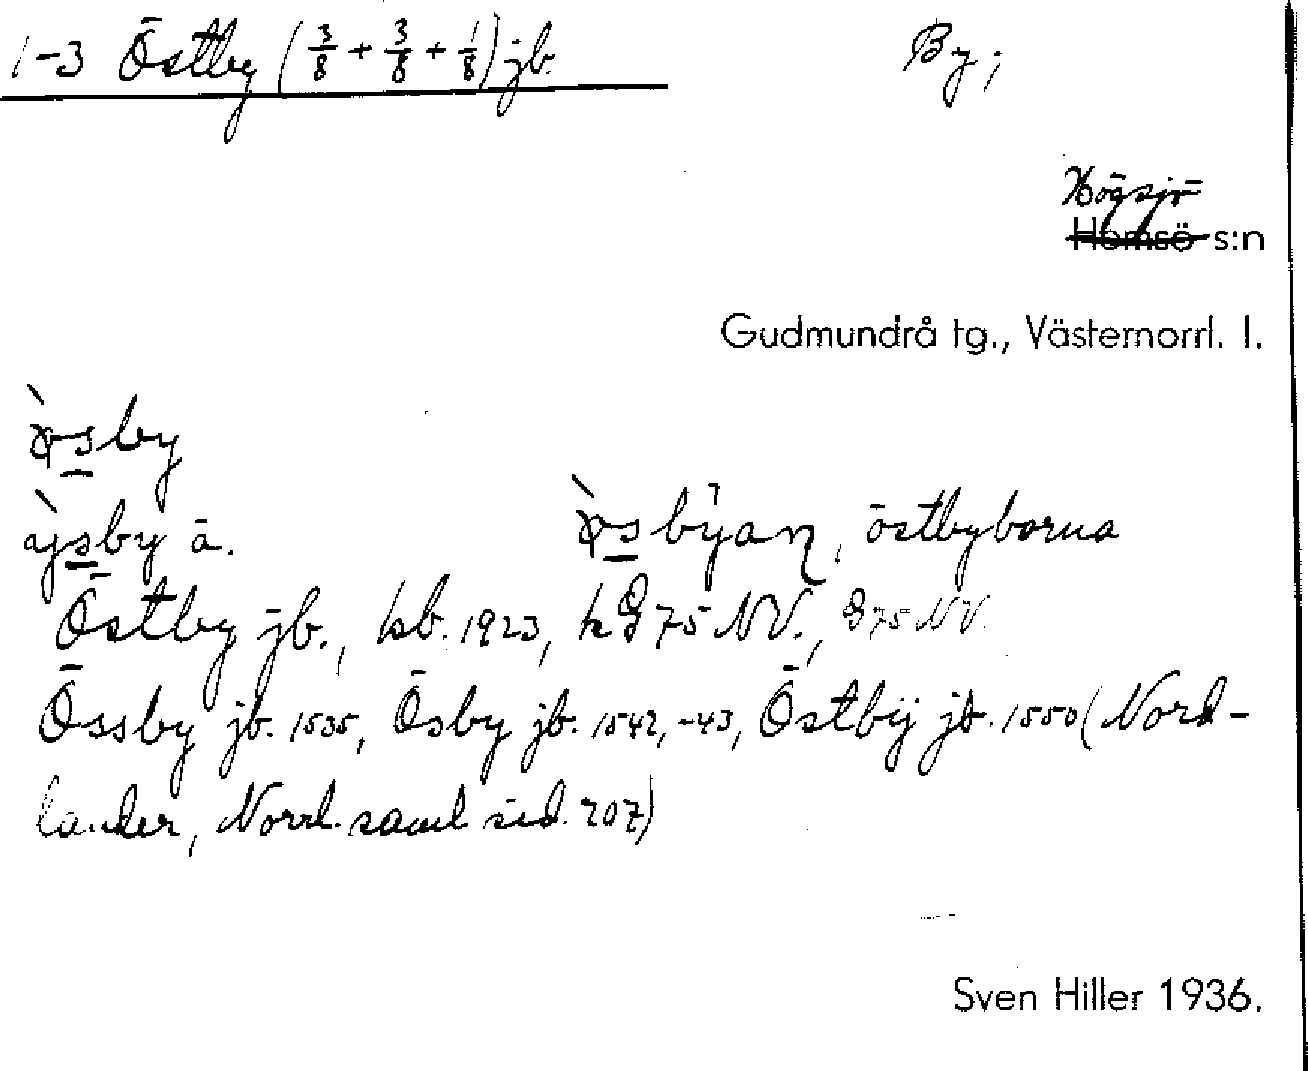 1-3 Östby (3/8 + 3/8 + 1/8) jb. By;
Högsjö
Hemsö s:n
Gudmundrå tg., Västernorrl. l.
sby
sby ä. östbyborna
Östby jb., hsb. 1923, k 75 NV., 75 NV.
Össby jb. 1535, Ösby jb. 1542, -43, Östbÿ jb. 1550 (Nord-
lander, Norrl. saml sid. 207)
Sven Hiller 1936.